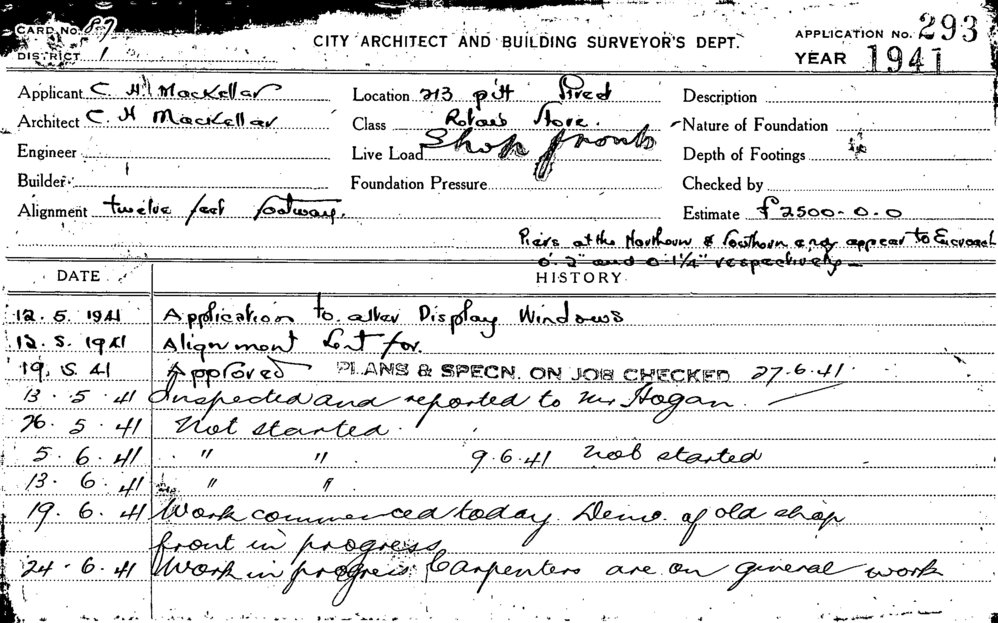 CARD No. 87
DISTRICT 1
CITY ARCHITECT AND BUILDING SURVEYOR'S DEPT.
APPLICATION No. 293
YEAR 1941
Applicant C. H. MacKellar Location 213 pitt Street Description
Architect C. H MacKellar Class Store. Nature of Foundation
Engineer Live Load Shop fronts Depth of Footings
Builder Foundation Pressure Checked by
Alignment twelve feet footway. Estimate £2500-0-0
Piers at the Northern & Southern ends appear to Encroach
0. 2" and 0 1/4" respectively
DATE HISTORY
12. 5. 1941 Application to alter Display Windows
12. 5. 1941 Alignment Sent for.
19. 5. 41 Approved PLANS & SPECN. ON JOB CHECKED 27.6.41
13 . 5 . 41 Inspected and reported to Mr Hogan.
26. 5 . 41 Not started.
5 . 6 . 41 " " 9.6.41 Not started
13 . 6 . 41 " "
19. 6. 41 Work commenced today. Demo. of old shop
front in progress
24 . 6 . 41 Work in progress. Carpenters are on general work